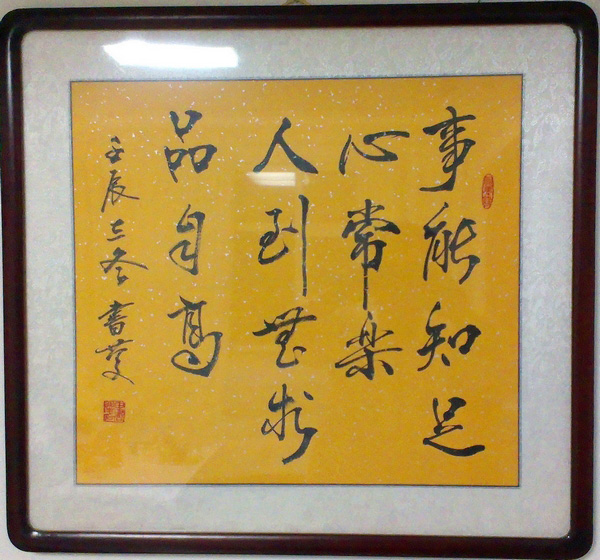 事能知足
心常樂
人到無求
品自高
壬辰立冬 書